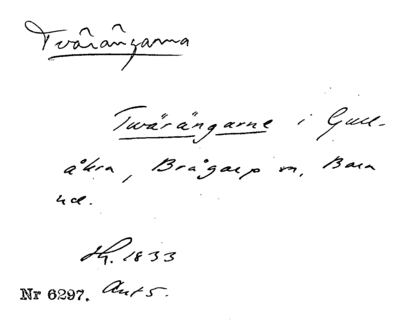 Tvärängarna
Twärängarne i Gull-
åkra, Brågarp m, Bara
hd.
Sk. 1833
Nr 6297. Akt 5.